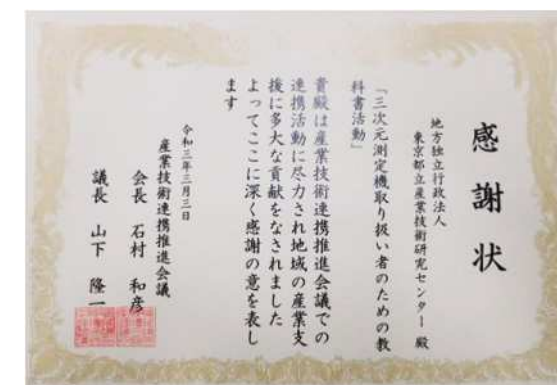 感謝状
地方独立行政法人
東京都立産業技術研究センター 殿
「三次元測定機取り扱い者のための教
科書活動」
貴殿は産業技術連携推進会議での
連携活動に尽力され地域の産業支
援に多大な貢献をなされました
よってここに深く感謝の意を表し
ます
令和三年三月三日
産業技術連携推進会議
会長 石村 和彦
議長 山下 隆一